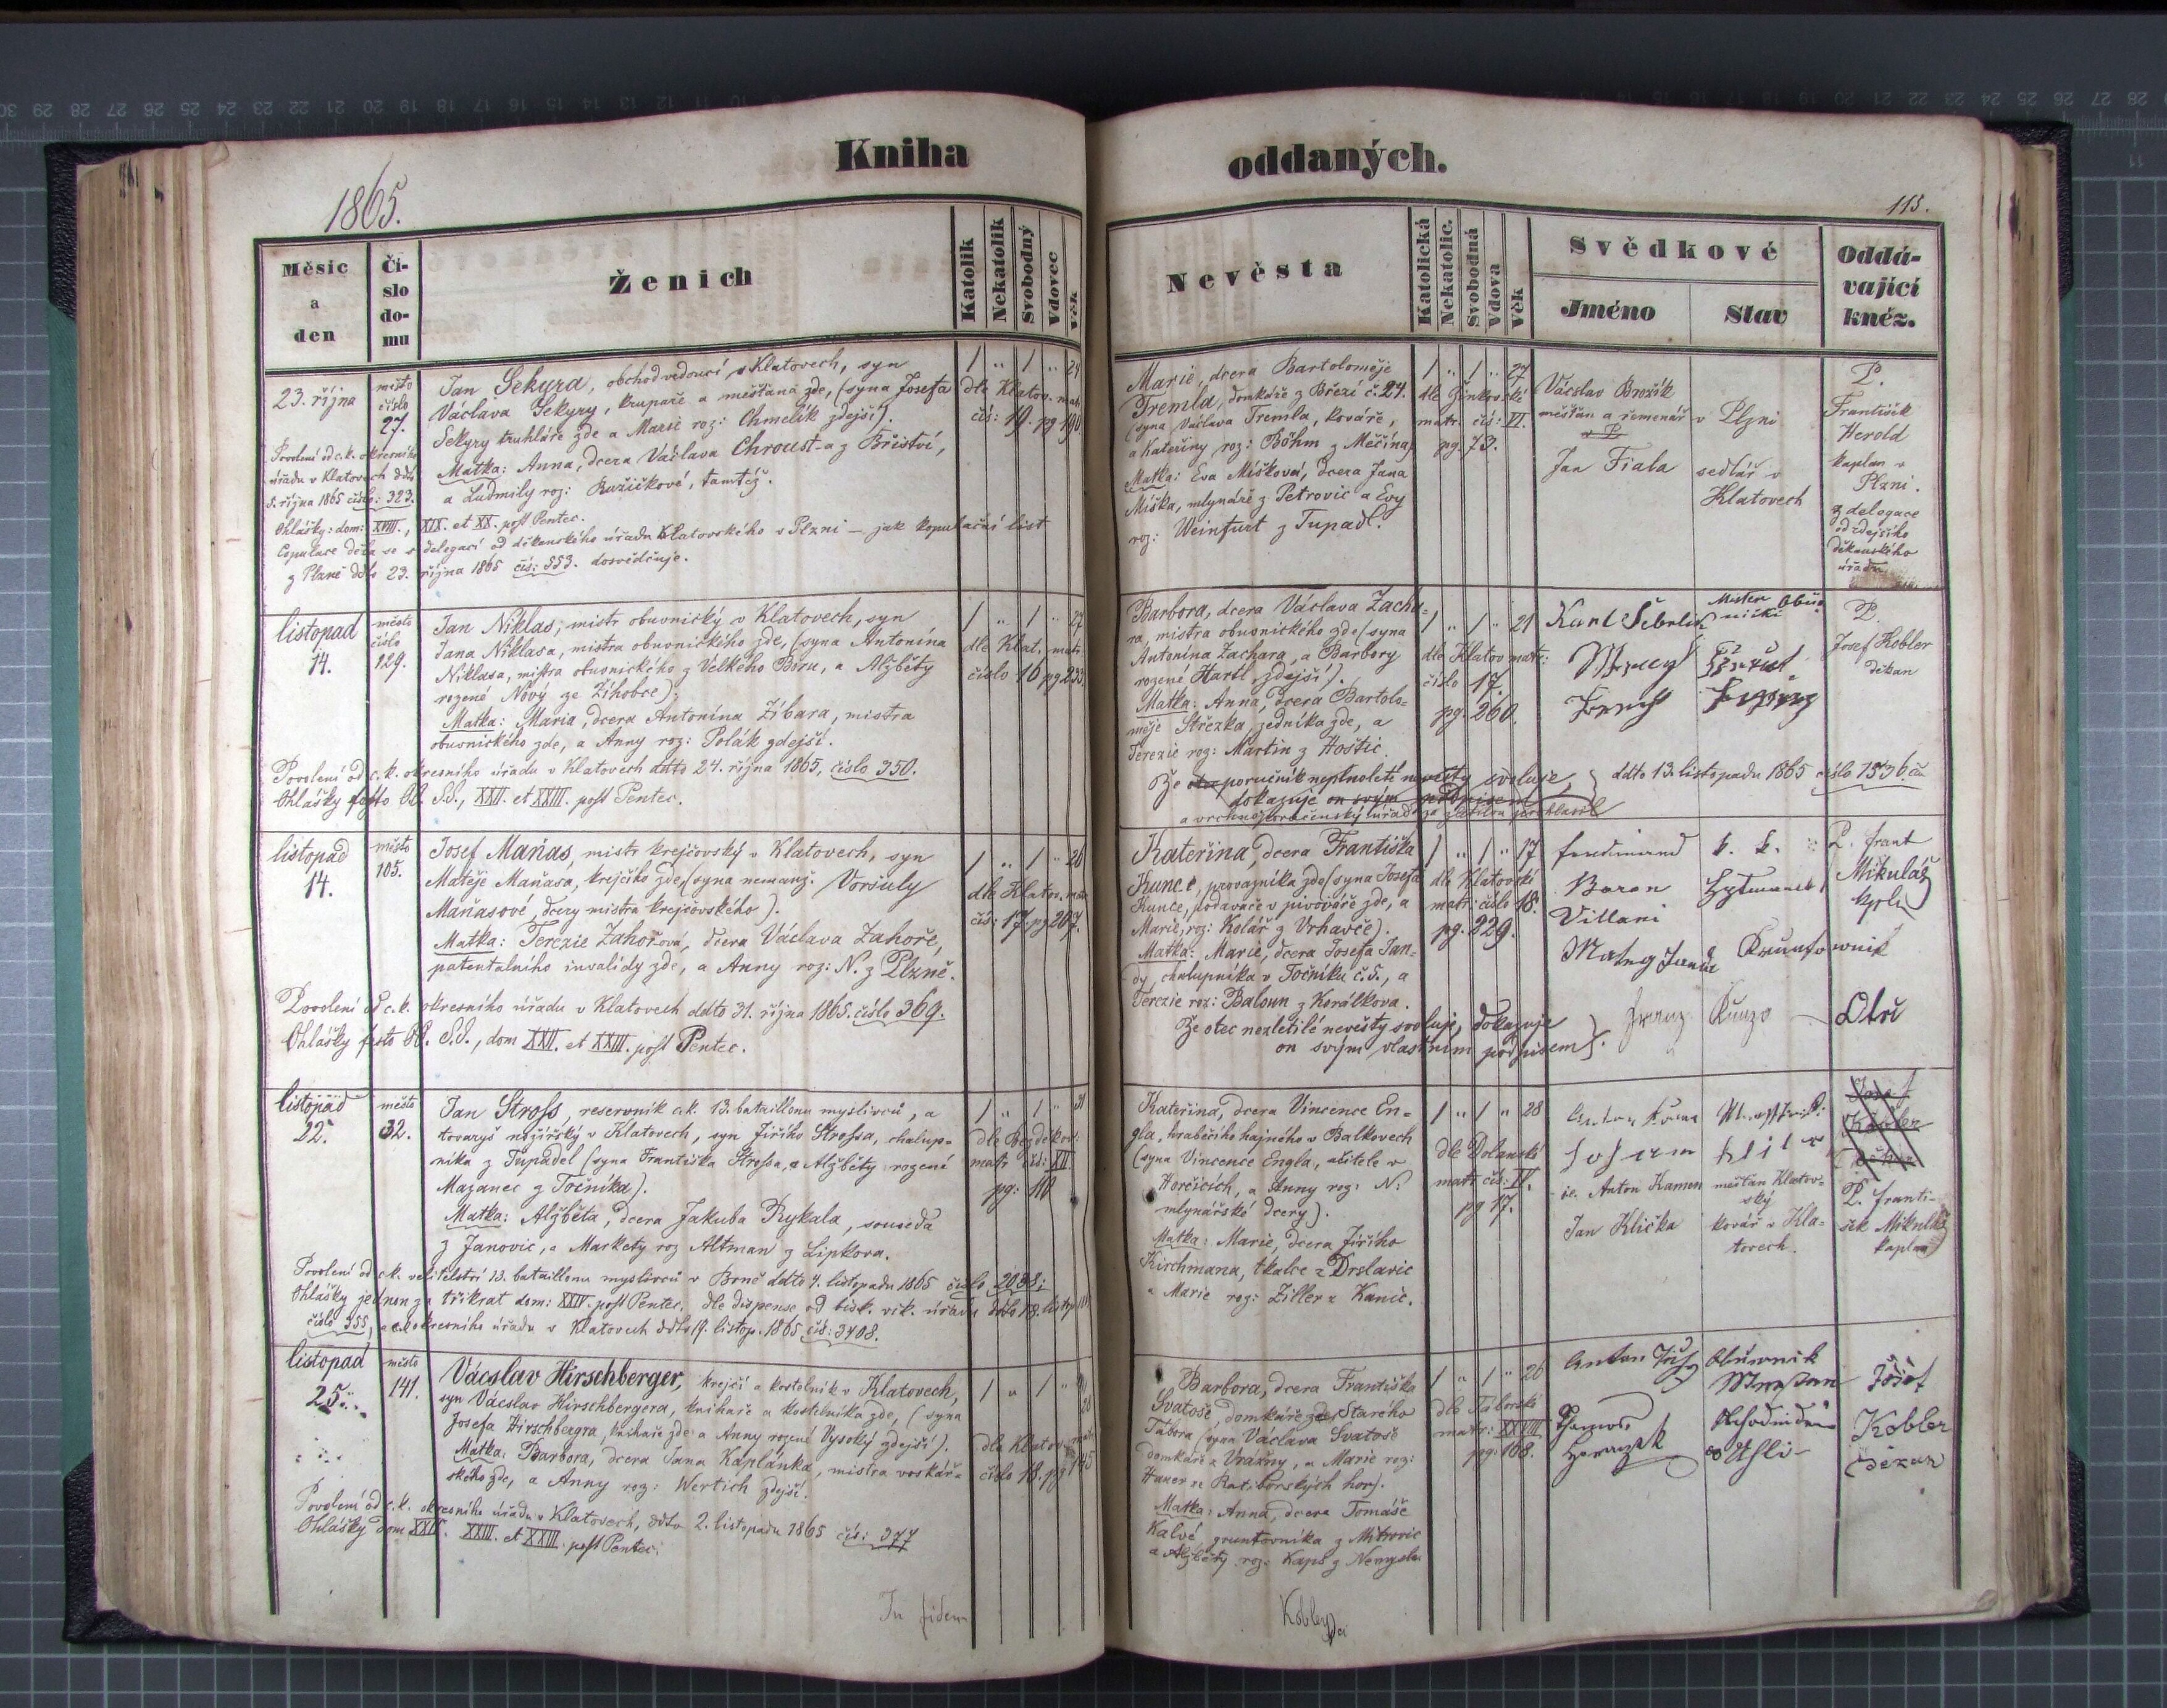 Kniha
oddaných.
1865.
115.
Měsíc
a
den
Čí-
slo
do-
mu
Ženich
Katolik
Nekatolik
Svobodný
Vdovec
Věk
Nevěsta
Katolická
Nekatolic.
Svobodná
Vdova
Věk
Svědkové
Jméno
Stav
Oddá-
vající
kněz.
23. října
město
číslo
27.
Jan Sekyra, obchodvedoucí v Klatovech, syn
Vaclava Sekyry, krupaře a měšťana zde, (syna Josefa
Sekyry truhláře zde a Marie roz: Chmelík zdejší).
Matka: Anna, dcera Václava Chroust-a z Břištví,
a Ludmily roz: Ružičkové, tamtéž.
1 „ 1 „ 24
dle Klatov. mat.
čís: 19. pg 190.
Povolení od c.k. okresního
úřadu v Klatovech ddto
5. října 1865 číslo: 323.
Ohlášky: dom: XVIII., XIX. et XX. post Pentec.
Copulace děla se s delegací od děkanského úřadu Klatovského v Plzni — jak kopulační list
z Plzně ddto 23. října 1865 čís: 553. dosvědčuje.
Marie, dcera Bartoloměje
Tremla, domkáře z Březí č. 24.
(syna Václava Tremla, kováře,
a Kateřiny roz: Böhm z Měčína)
Matka: Eva Míšková, dcera Jana
Míška, mlynáře z Petrovic a Evy
roz: Weinfurt z Tupadl.
1 „ 1 „ 27
matr. čís: VI.
pg. 73.
Vácslav Brožík
měšťan a řemenář v Plzni
Jan Fiala
sedlář v
Klatovech
P.
František
Herold
kaplan v
Plzni.
z delegace
od zdejšího
děkanského
úřadu
listopad
14.
město
číslo
129.
Jan Niklas, mistr obuvnický v Klatovech, syn
Jana Niklasa, mistra obuvnického zde, (syna Antonína
Niklasa, mistra obuvnického z Velkého Boru, a Alžběty
rozené Nový ze Žihobce);
Matka: Maria, dcera Antonína Žibara, mistra
obuvnického zde, a Anny roz: Polák zdejší.
1 „ 1 „ 27
dle Klat. matr.
číslo 16 pg 233
Povolení od c.k. okresního úřadu v Klatovech ddto 24. října 1865, číslo 350.
Ohlášky festo OO. S.S., XXII. et XXIII. post Pentec.
Barbora, dcera Václava Zacha-
ra, mistra obuvnického zde (syna
Antonína Zachara, a Barbory
rozené Hartl zdejší).
Matka: Anna, dcera Bartolo-
měje Střezka, zedníka zde, a
Terezie roz: Martin z Hoštic.
1 „ 1 „ 21
dle Klatov matr:
číslo 17.
pg. 260.
Že poručník neplnoleté nevěsty svoluje,
dokazuje on svým podpisem
ddto 13. listopadu 1865 číslo 1536.
P.
Josef Kobler
děkan
listopad
14.
město
105.
Josef Maňas, mistr krejčovský v Klatovech, syn
Matěje Maňasa, krejčího zde, (syna nemanž. Voršuly
Maňasové, dcery mistra krejčovského).
Matka: Terezie Zahořová, dcera Václava Zahoře,
patentalního invalidy zde, a Anny roz: N. z Plzně.
1 „ 1 „ 26
dle Klatov. matr.
čís: 17. pg 267.
Povolení od c.k. okresního úřadu v Klatovech ddto 31. října 1865. číslo 369.
Ohlášky festo OO. S.S., dom XXII. et XXIII. post Pentec.
Kateřina, dcera Františka
Kunce, provazníka zde (syna Josefa
Kunce, podavače v pivováře zde, a
Marie, roz: Kolář z Vrhavče).
Matka: Marie, dcera Josefa Jan-
dy, chalupníka v Točníku č. 5., a
Terezie roz: Baloun z Korálkova.
1 „ 1 „ 17
dle Klatovské
matr: číslo 18.
pg. 229.
Že otec nezletilé nevěsty svoluje, dokazuje
on svým vlastním podpisem
Ferdinand
Baron
Villani
k. k.
Franz Kunzo
Otec
P. Frant
Mikuláš
kpln
listopad
22.
město
32.
Jan Stross, reservník c.k. 13. bataillonu myslivců, a
tovaryš nožířský v Klatovech, syn Jiřího Strossa, chalup-
níka z Tupadel (syna Františka Strossa, a Alžběty rozené
Mazanec z Točníka).
Matka: Alžběta, dcera Jakuba Rykala, souseda
z Janovic, a Markety roz Altman z Lipkova.
1 „ 1 „ 31
dle Bezděkov:
matr čís: XII.
pg: 110
Povolení od c.k. velitelství 13. bataillonu myslivců v Brně ddto 4. listopadu 1865 číslo 2088;
Ohlášky jednou za třikrat dom: XXIV. post Pentec. dle dispense od bisk. vik. úřadu ddto 18. listop
číslo 355, a c.k. okresního úřadu v Klatovech ddto 19. listop. 1865 čís: 3408.
Kateřina, dcera Vincence En-
gla, hraběcího hajného v Balkovech
(syna Vincence Engla, učitele v
Horčicích, a Anny roz: N.
mlynářské dcery).
Matka: Marie, dcera Jiřího
Kirchmana, tkalce z Drslavic
a Marie roz: Ziller z Kanic.
1 „ 1 „ 28
dle Dolanské
matr čís: IV.
pg 17.
ic. Anton Kamen
měšťan Klatov-
ský
Jan Klička
kovář v Kla-
tovech.
Josef
Kobler
děkan
P. Franti-
šek Mikuláš
kaplan
listopad
25.
město
141.
Vácslav Hirschberger, krejčí a kostelník v Klatovech,
syn Vácslav Hirschbergera, knihaře a kostelníka zde, (syna
Josefa Hirschbergra, knihaře zde a Anny rozené Vysoký zdejší).
Matka: Barbora, dcera Jana Kaplánka, mistra voskář-
ského zde, a Anny roz: Wertich zdejší.
1 „ 1 „
dle Klatov. matr
číslo 18. pg 145
Povolení od c.k. okresního úřadu v Klatovech, ddto 2. listopadu 1865 čís: 377
Ohlášky dom XXII. XXIII. et XXIII. post Pentec.
Barbora, dcera Františka
Svatoše, domkáře ze Starého
Tábora (syna Václava Svatoše
domkáře z Vrážny, a Marie roz:
Hauer ze Ratibořských hor).
Matka: Anna, dcera Tomáše
Kalvé, gruntovníka z Mitrovic
a Alžběty roz: Kaps z Nemyšle.
1 „ 1 „ 26
dle Táborské
matr: XXVIII
pg: 168.
Josef
Kobler
děkan
In fidem
Kobler